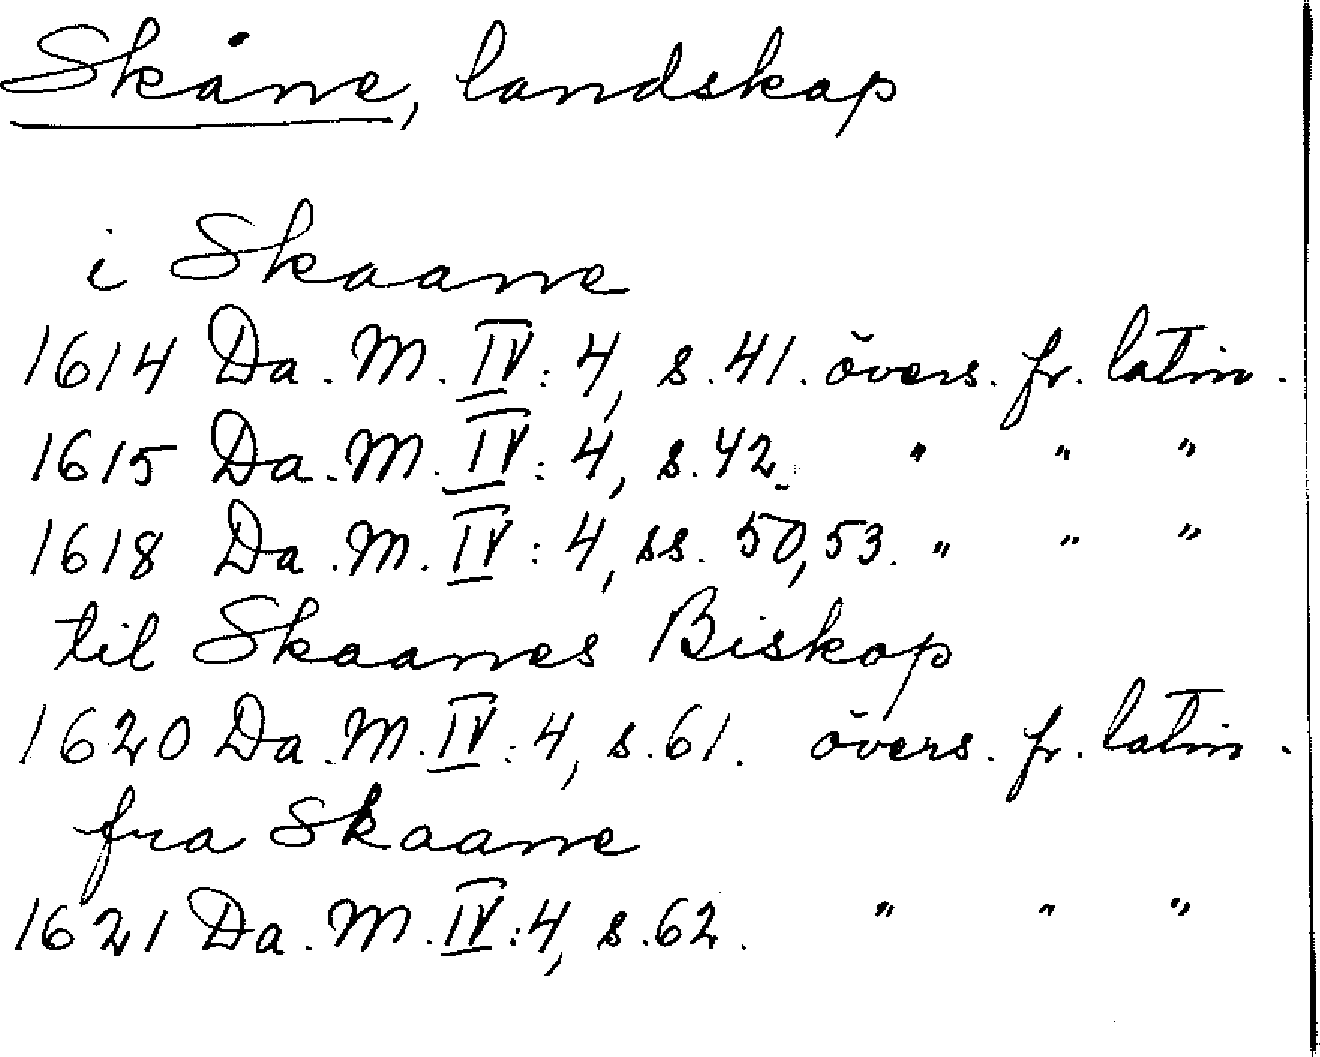 Skåne, landskap
i Skaane
1614 Da. M. IV: 4, s. 41. övers. fr. latin.
1615 Da. M. IV: 4, s. 42. " " "
1618 Da. M. IV: 4, ss. 50, 53. " " "
til Skaanes Biskop
1620 Da. M. IV: 4, s. 61. övers. fr. latin.
fra Skaane
1621 Da. M. IV: 4, s. 62. " " "